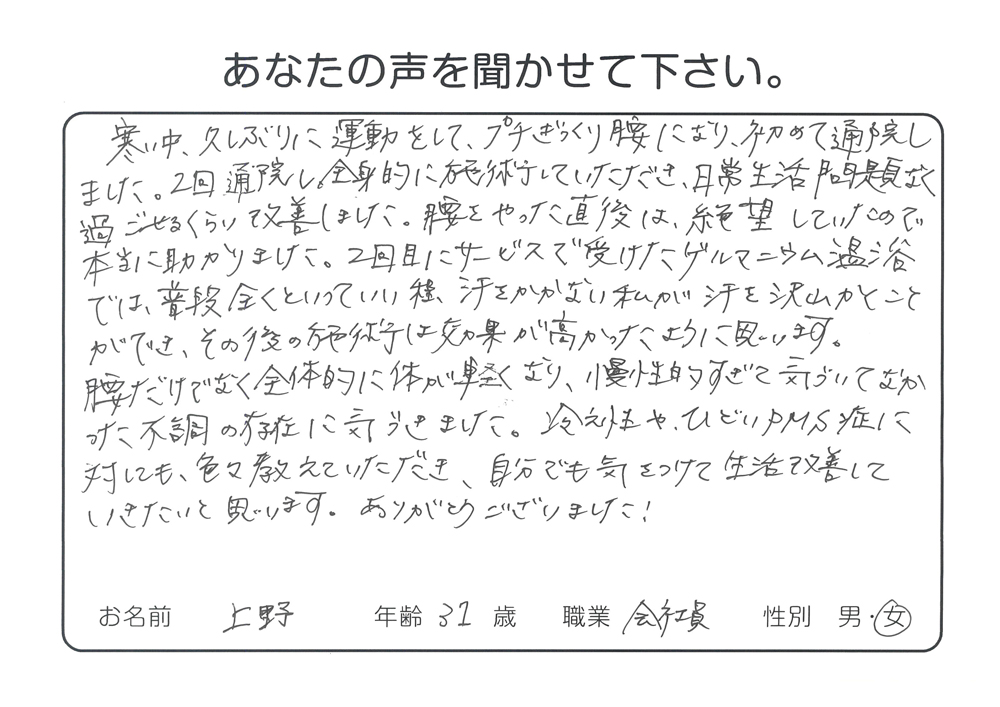 あなたの声を聞かせて下さい。
寒い中、久しぶりに運動をして、プチぎっくり腰になり、初めて通院し
ました。2回通院し、全身的に施術していただき、日常生活問題なく
過ごせるくらい改善しました。腰をやった直後は、絶望していたので
本当に助かりました。2回目にサービスで受けたゲルマニウム温浴
では、普段全くといっていい程、汗をかかない私が汗を沢山かくこと
ができ、その後の施術は効果が高かったように思います。
腰だけでなく全体的に体が軽くなり、慢性的すぎて気づいてなか
った不調の存在に気づきました。冷え性や、ひどいPMS症に
対しても、色々教えていただき、自分でも気をつけて生活改善して
いきたいと思います。ありがとうございました!
お名前 上野 年齢 31 歳 職業 会社員 性別 男・女